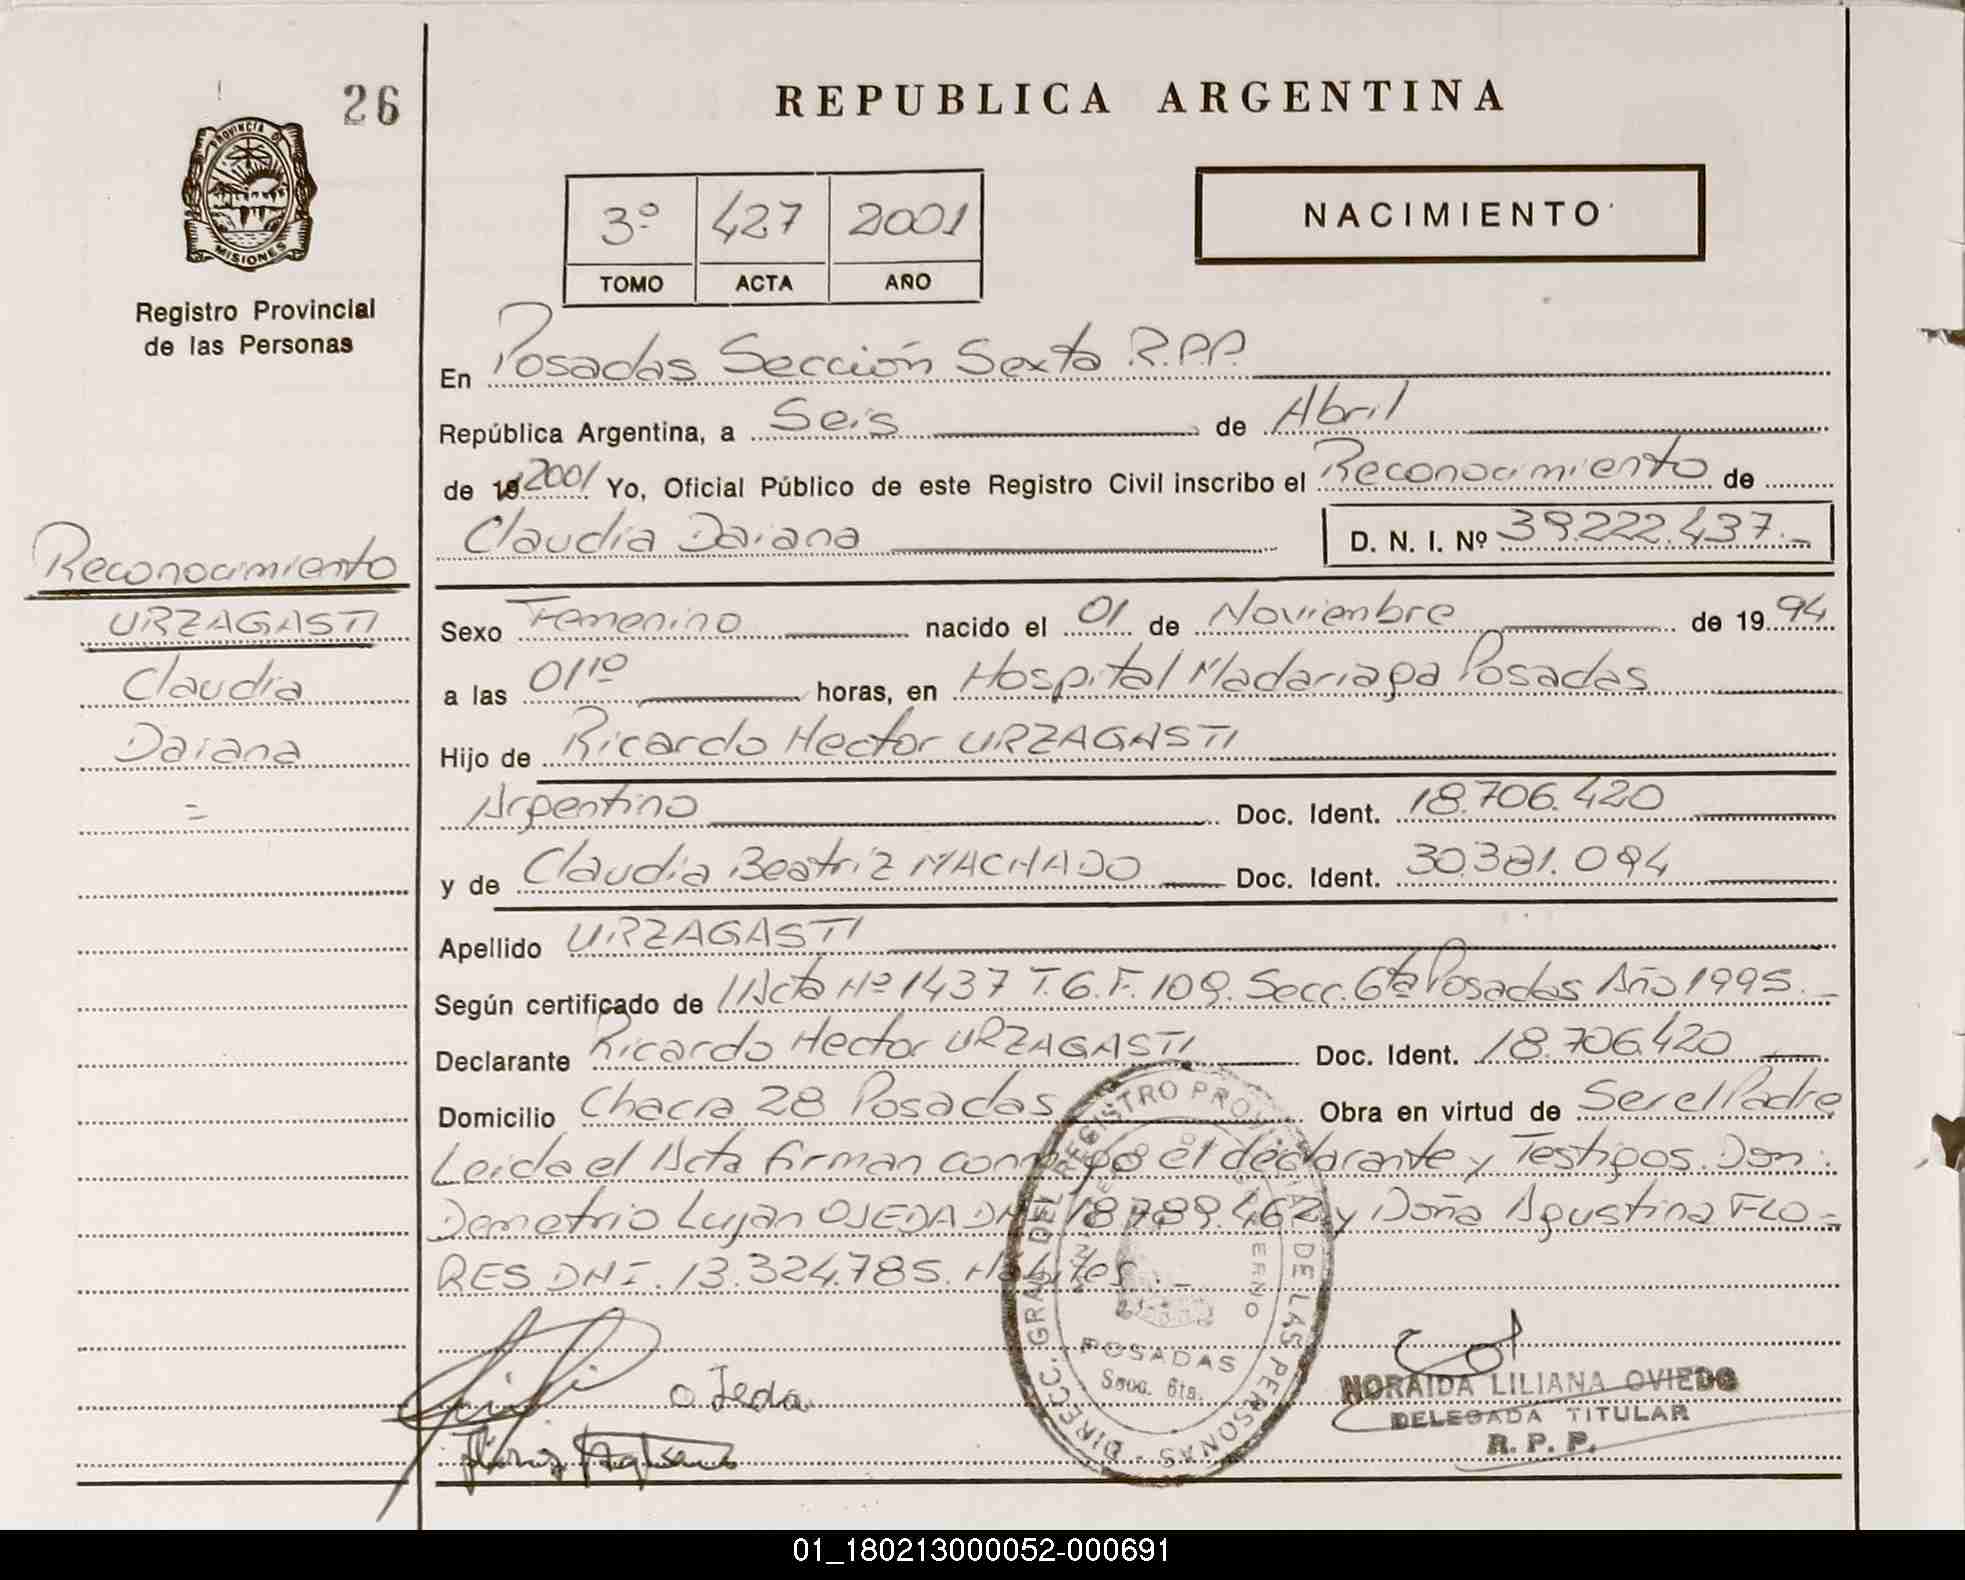 26
REPUBLICA ARGENTINA
PROVINCIA DE
MISIONES
Registro Provincial
de las Personas
3º 427 2001
TOMO ACTA AÑO
NACIMIENTO
En Posadas Sección Sexta R.P.P.
República Argentina, a Seis de Abril
de 19 2001 Yo, Oficial Público de este Registro Civil inscribo el Reconocimiento de
Claudia Daiana D. N. I. Nº 39.222.437.-
Reconocimiento
URZAGASTI
Claudia
Daiana
=
Sexo Femenino nacido el 01 de Noviembre de 1994
a las 01¹⁰ horas, en Hospital Madariaga Posadas
Hijo de Ricardo Hector URZAGASTI
Argentino Doc. Ident. 18.706.420
y de Claudia Beatriz MACHADO Doc. Ident. 30.381.094
Apellido URZAGASTI
Según certificado de Acta Nº 1437 T.6.F. 109. Secc. 6ta Posadas Año 1995.-
Declarante Ricardo Hector URZAGASTI Doc. Ident. 18.706.420
Domicilio Chacra 28 Posadas Obra en virtud de Ser el Padre
Leida el Acta firman conmigo el declarante y Testigos. Don:
Demetrio Lujan OJEDA DNI 18.789.462 y Doña Agustina FLO-
RES DNI. 13.324.785. Habiles.-
DIRECC. GRAL. DEL REGISTRO PROVINCIAL DE LAS PERSONAS -
POSADAS
Secc. 6ta.
oJeda
NORAIDA LILIANA OVIEDO
DELEGADA TITULAR
R. P. P.
01_180213000052-000691